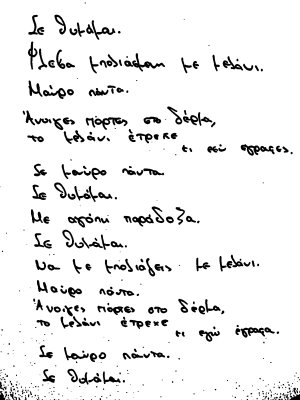 Σε θυμάμαι.
Φλέβα μπολιάσμένη με μελάνι.
Μαύρο πάντα.
Άνοιγες πόρτες στο δέρμα,
το μελάνι έτρεχε
κι εσύ έγραφες.
Σε μαύρο πάντα
Σε θυμάμαι.
Με αγάπη παράδοξα.
Σε θυμάμαι.
να με μπολιάζεις με μελάνι.
Μαύρο πάντα.
Άνοιγες πόρτες στο δέρμα,
το μελάνι έτρεχε
κι εγώ έγραφα.
Σε μαύρο πάντα.
Σε θυμάμαι.